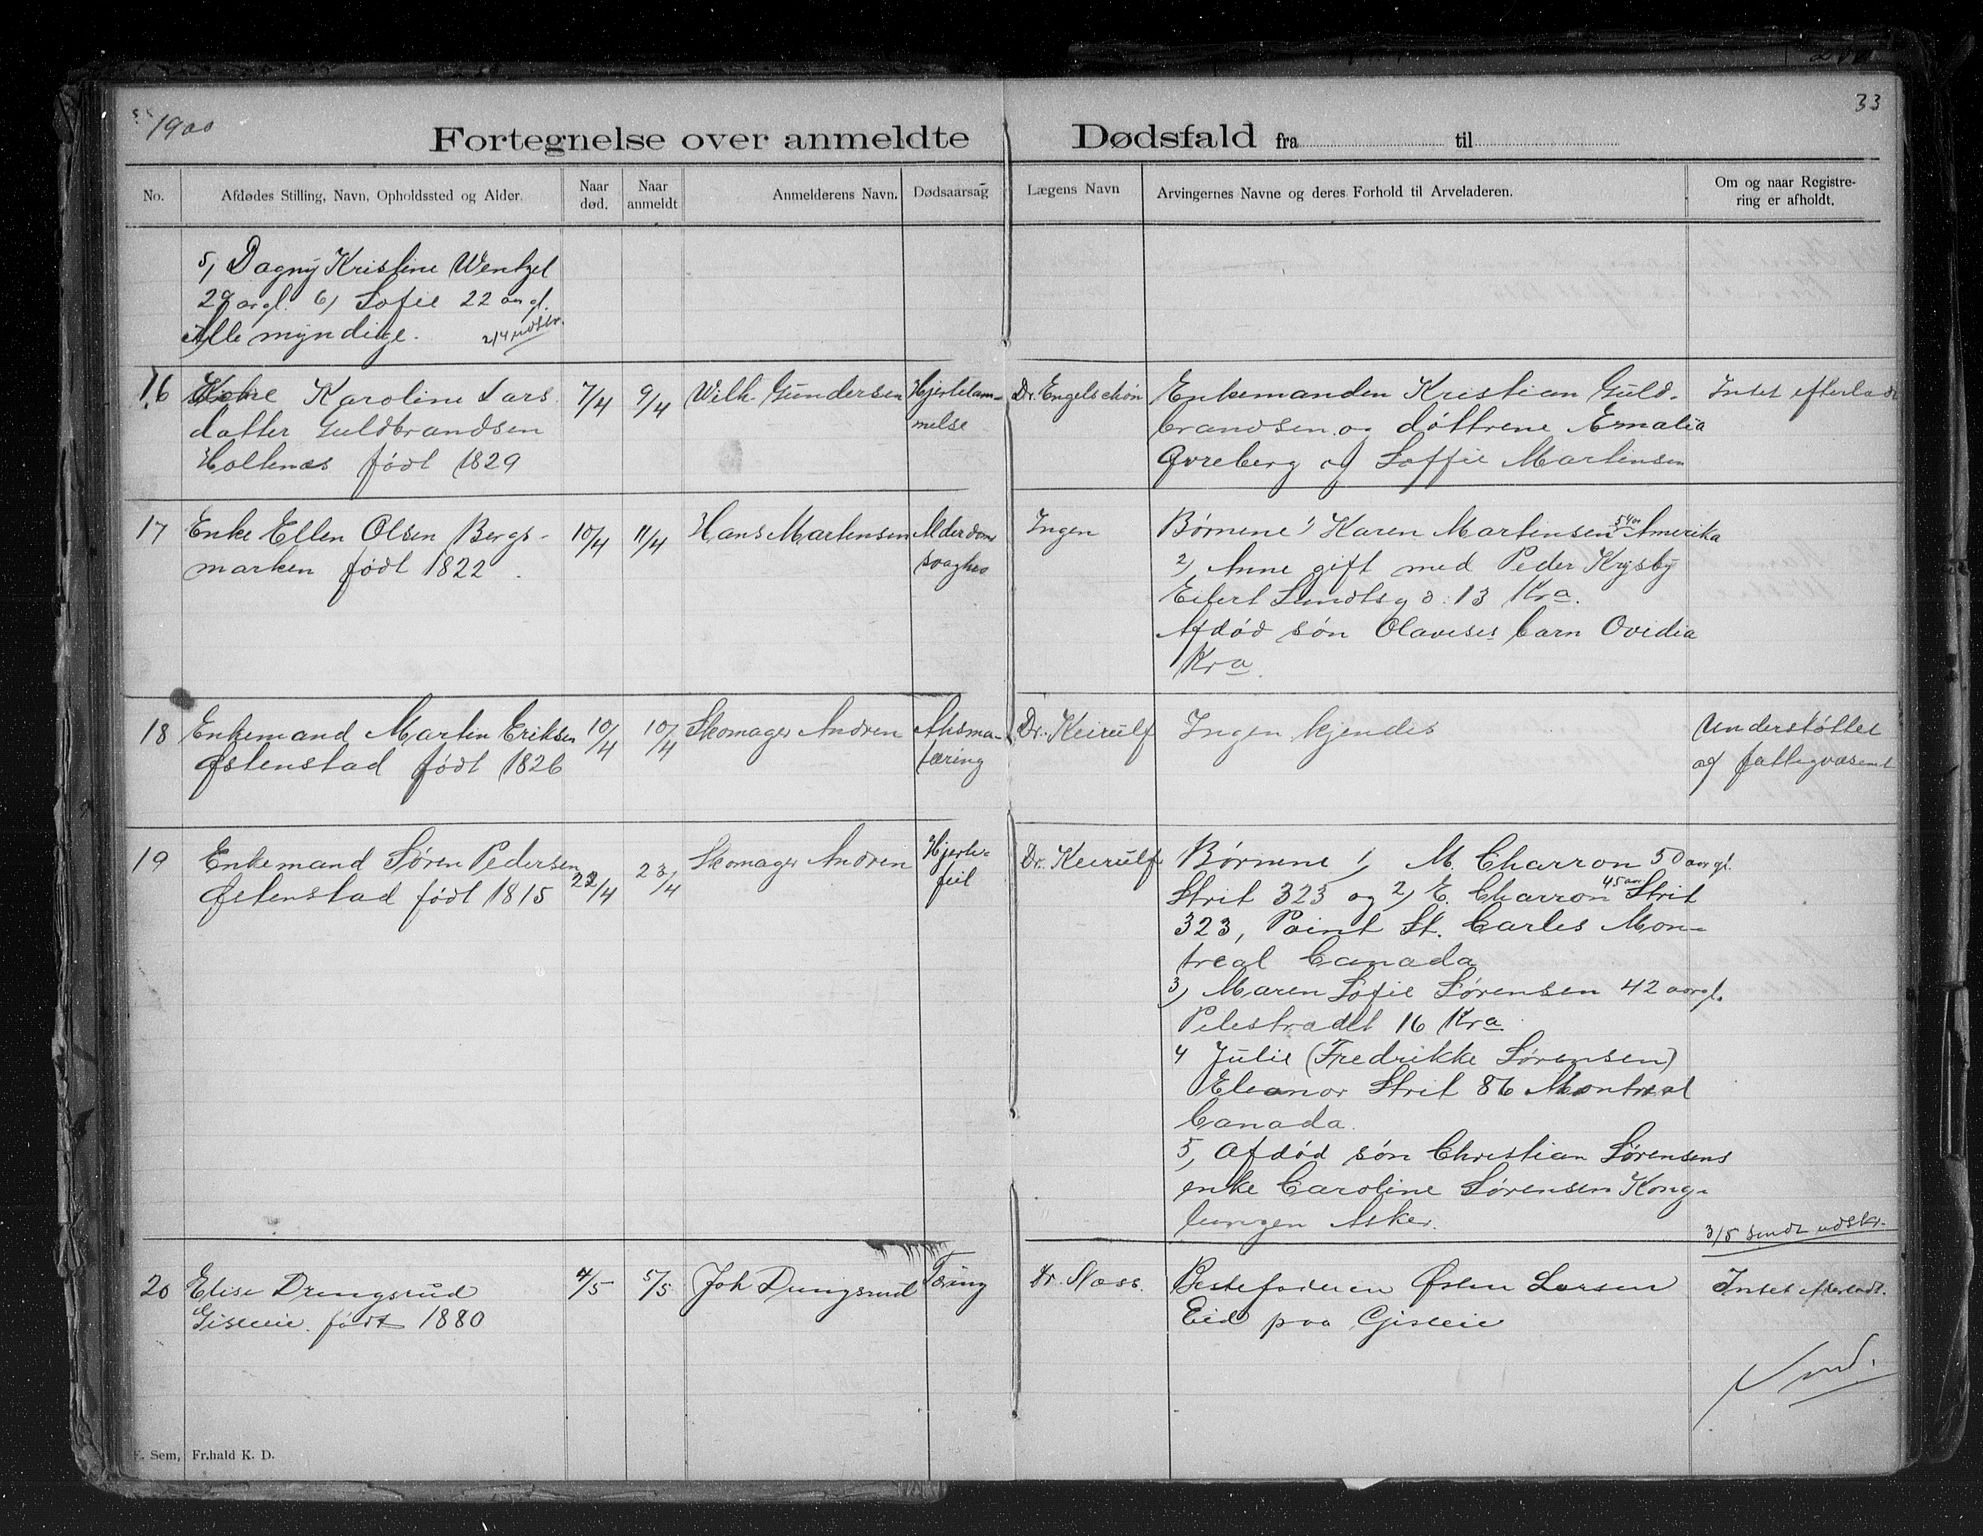 1900
33
Fortegnelse over anmeldte Dødsfald fra til
No.
Afdødes Stilling, Navn, Opholdssted og Alder.
Naar død.
Naar anmeldt
Anmelderens Navn.
Dødsaarsag
Lægens Navn
Arvingernes Navne og deres Forhold til Arveladeren.
Om og naar Registre-
ring er afholdt.
5, Dagny Kristine Wentzel
29 argl. 6, Sofie 22 aargl.
Alle myndige. 2/4 udskr.
16
Kone Karoline Lars
datter Guldbrandsen
Holtenæs født 1829
7/4
9/4
Wilh. Gundersen
Hjertelam-
melse
Dr. Engelschøn
Enkemanden Kristian Guld-
brandsen og døttrene Emalia
Qvreberg og Soffie Martinsen
Intet efterladt
17
Enke Ellen Olsen Bergs-
marken født 1822.
10/4
11/4
Hans Martensen
Alderdoms
svaghed
Ingen
Børnene 1 Karen Martensen 54 aar Amerika
2, Anne gift med Peder Krysby
Eilert Sundtsgd. 13 Kra.
Afdød søn Olavises barn Ovidia
Kra
18
Enkemand Martin Eriksen
Østenstad født 1826
10/4
10/4
Skomager Andren
Athsma-
tæring
Dr. Keirulf
Ingen kjendes
Understøttet
af fattigvæsent
19
Enkemand Søren Pedersen
Østenstad født 1815
22/4
23/4
Skomager Andren
Hjerte-
feil
Dr. Keirulf
Børnene 1, M. Charron 50 aargl.
Strit 323 og 2, E. Charron 45 aar Strit
323, Point St. Carles Mon-
treal Canada
3, Maren Sofie Sørensen 42 aargl.
Pilestrædet 16 Kra
4 Julie (Fredrikke Sørensen)
Eleanor Strit 86 Montreal
Canada.
5, Afdød søn Christian Sørensens
enke Caroline Sørensen Kong-
lungen Asker.
3/5 sendt udskr.
20
Elise Drengsrud
Gisleie født 1880
4/5
5/5
Joh Drengsrud
Tæring
Dr. Næss.
Bestefaderen Østen Larsen
Eid paa Gisleie
Intet efterladt.
F. Sem, Fr.hald K. D.